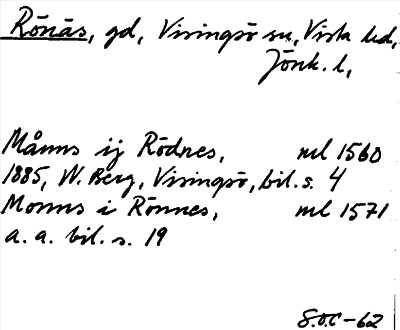 Rönäs, gd, Visingsö sn, Vista hd,
Jönk. l,
Måns ij Rödnes, ml 1560
1885, W. Berg, Visingsö, bil. s. 4
Monns i Rönnes, ml 1571
a. a. bil. s. 19
S.O.C-62